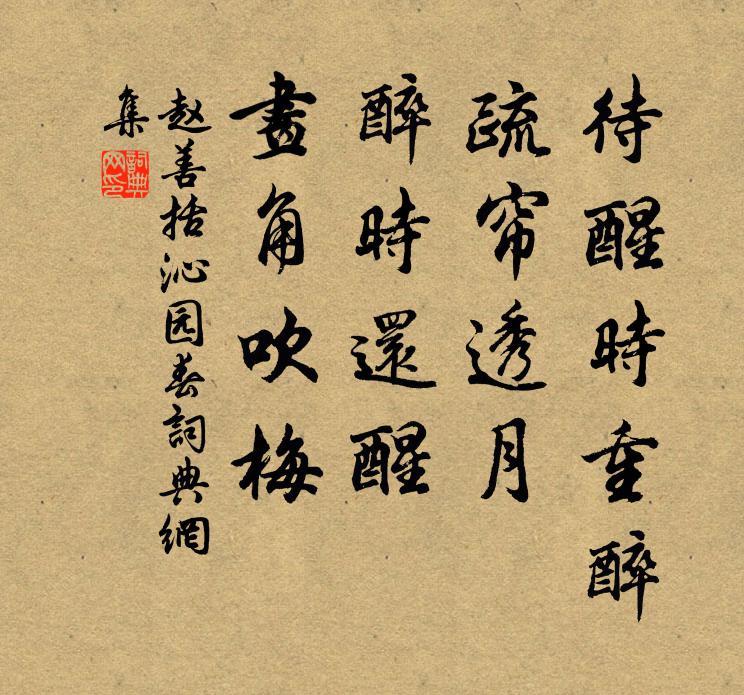 待醒時重醉
疏帘透月
醉時還醒
畫角吹梅
赵善括沁园春詞典網
集
詞典
网印